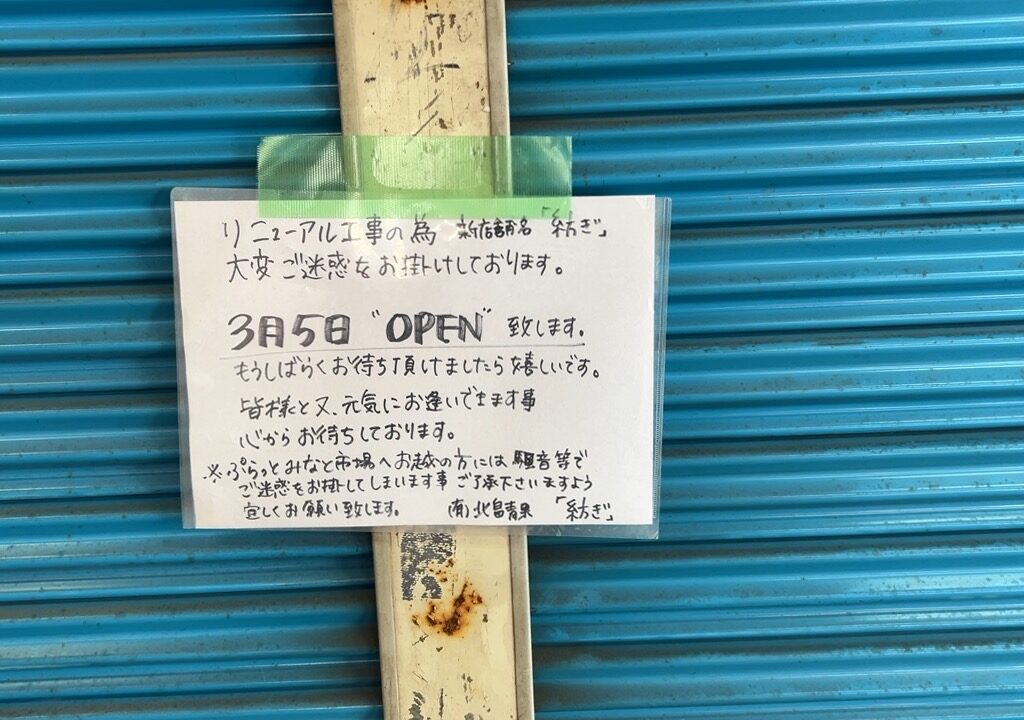 リニューアル工事の為 新店舗名「紡ぎ」
大変ご迷惑をお掛けしております。
3月5日 "OPEN" 致します。
もうしばらくお待ち頂けましたら嬉しいです。
皆様と又、元気にお逢いできます事
心からお待ちしております。
※ぷらっとみなと市場へお越の方には騒音等で
ご迷惑をお掛してしまいます事ご了承下さいますよう
宜しくお願い致します。 (有)北昌青果 「紡ぎ」